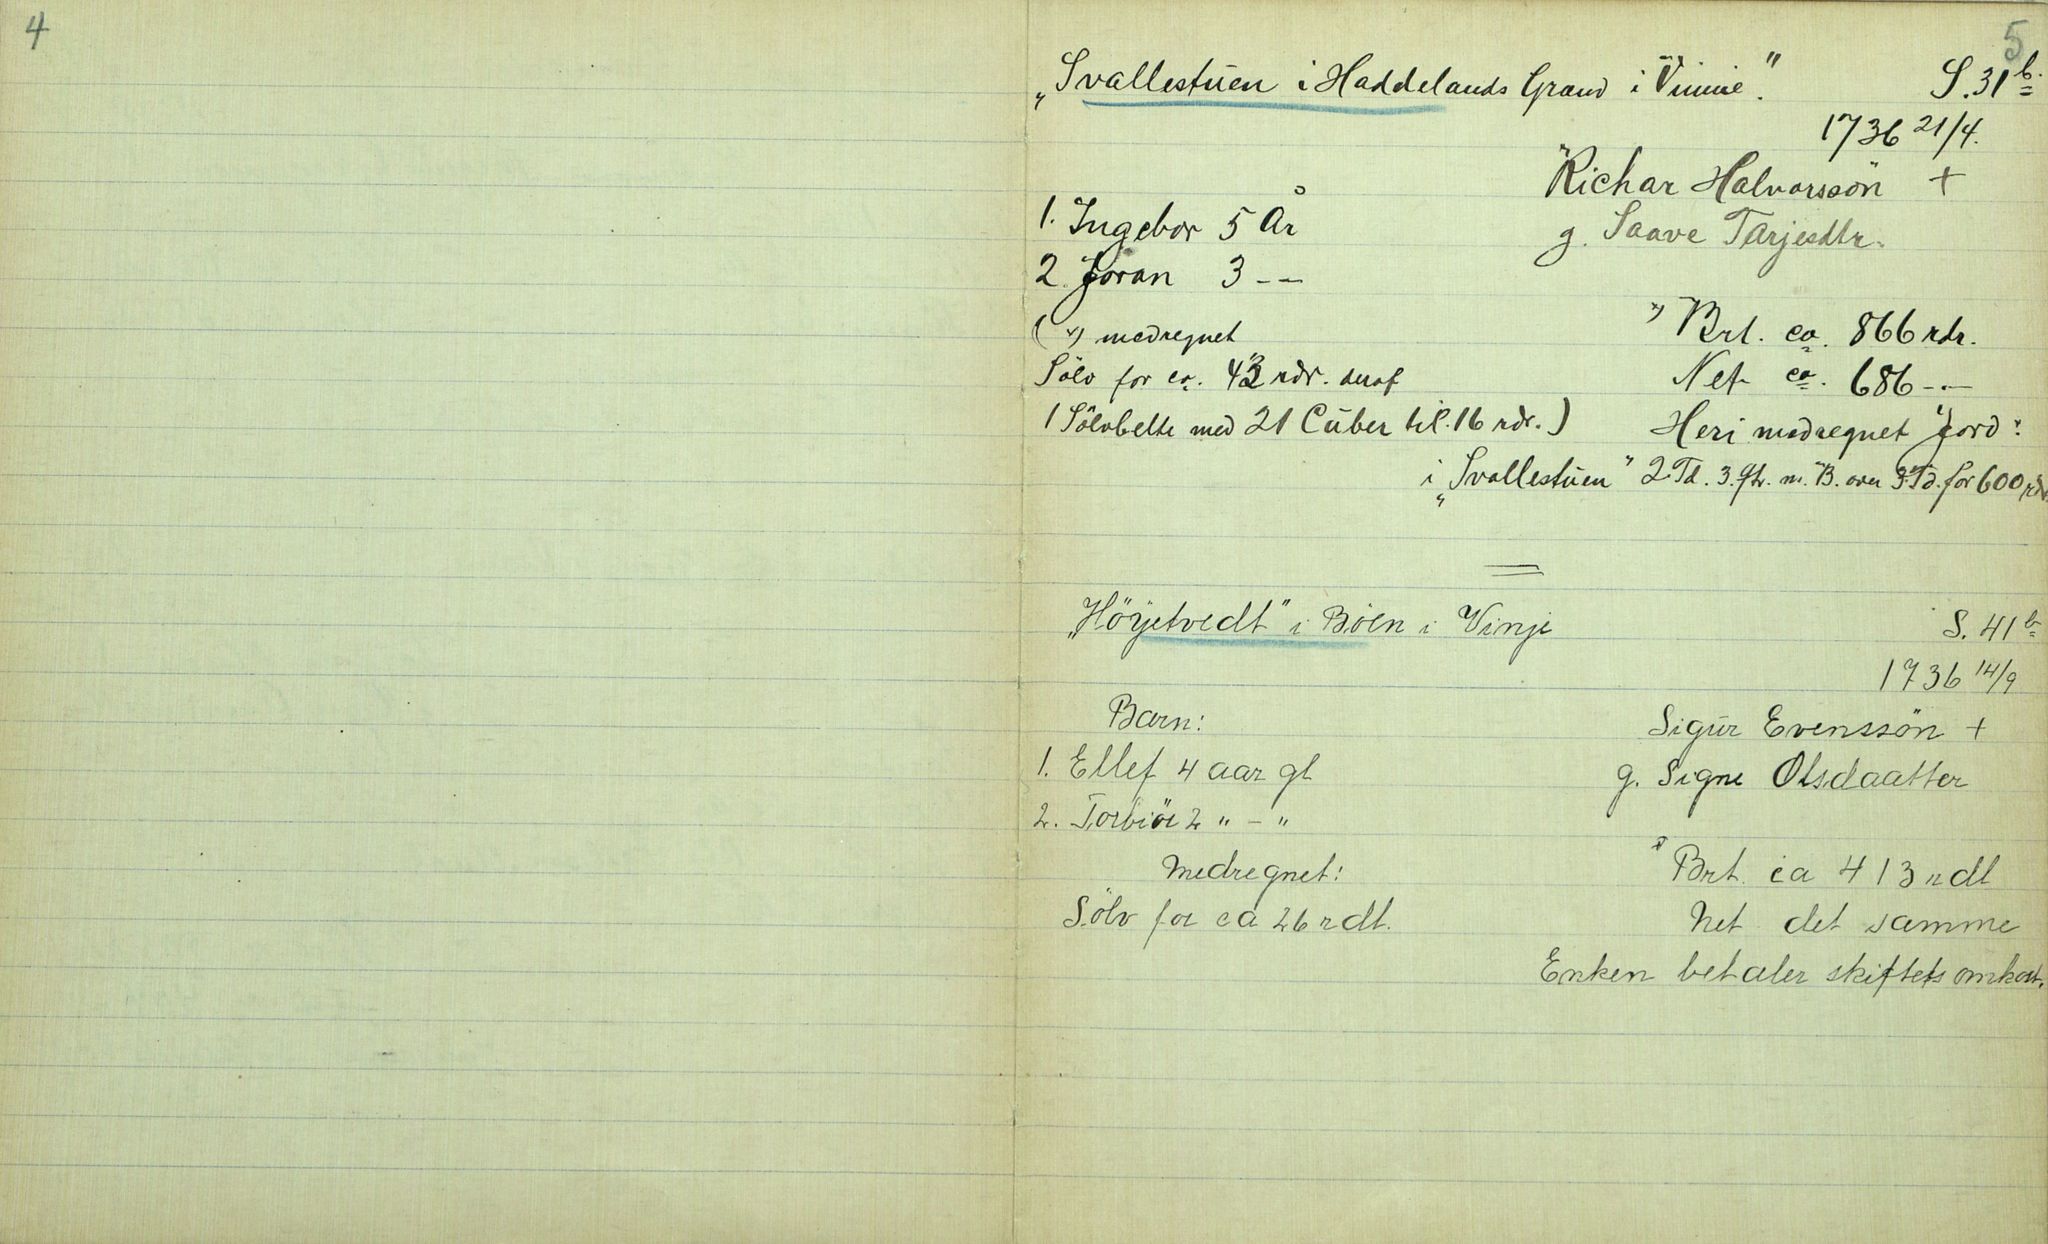 4
5
„Svallestuen i Haddelands Grand i Vinnie."
S. 31 b.
1736 21/4.
"Richar Halvorssön" +
g. Saave Tarjesdtr.
1. Ingebor 5 År
2. Joran 3 - —
*) Brt. ca. 866 rdr.
(*) medregnet
Net ca. 686 - —
Sölv for ca. 43 rdr. deraf
1 Sölvbelte med 21 Cuber til 16 rdr.)
Heri medregnet Jord:
i „Svallestuen" 2 Td. 3. qtr. m. B. over 3 Td. for 600 rdr.
„Höyetvedt" i Böen i Vinje
S. 41 b
1736 14/9
Barn:
Sigur Evenssön +
1. Ellef 4 aar gl
g. Signe Olsdaatter
2. Torbiör 2 " - "
Medregnet:
Brt. ca 413 rdl
Sölv for ca 26 rdl.
Net det samme
Enken betaler skiftets omkost.